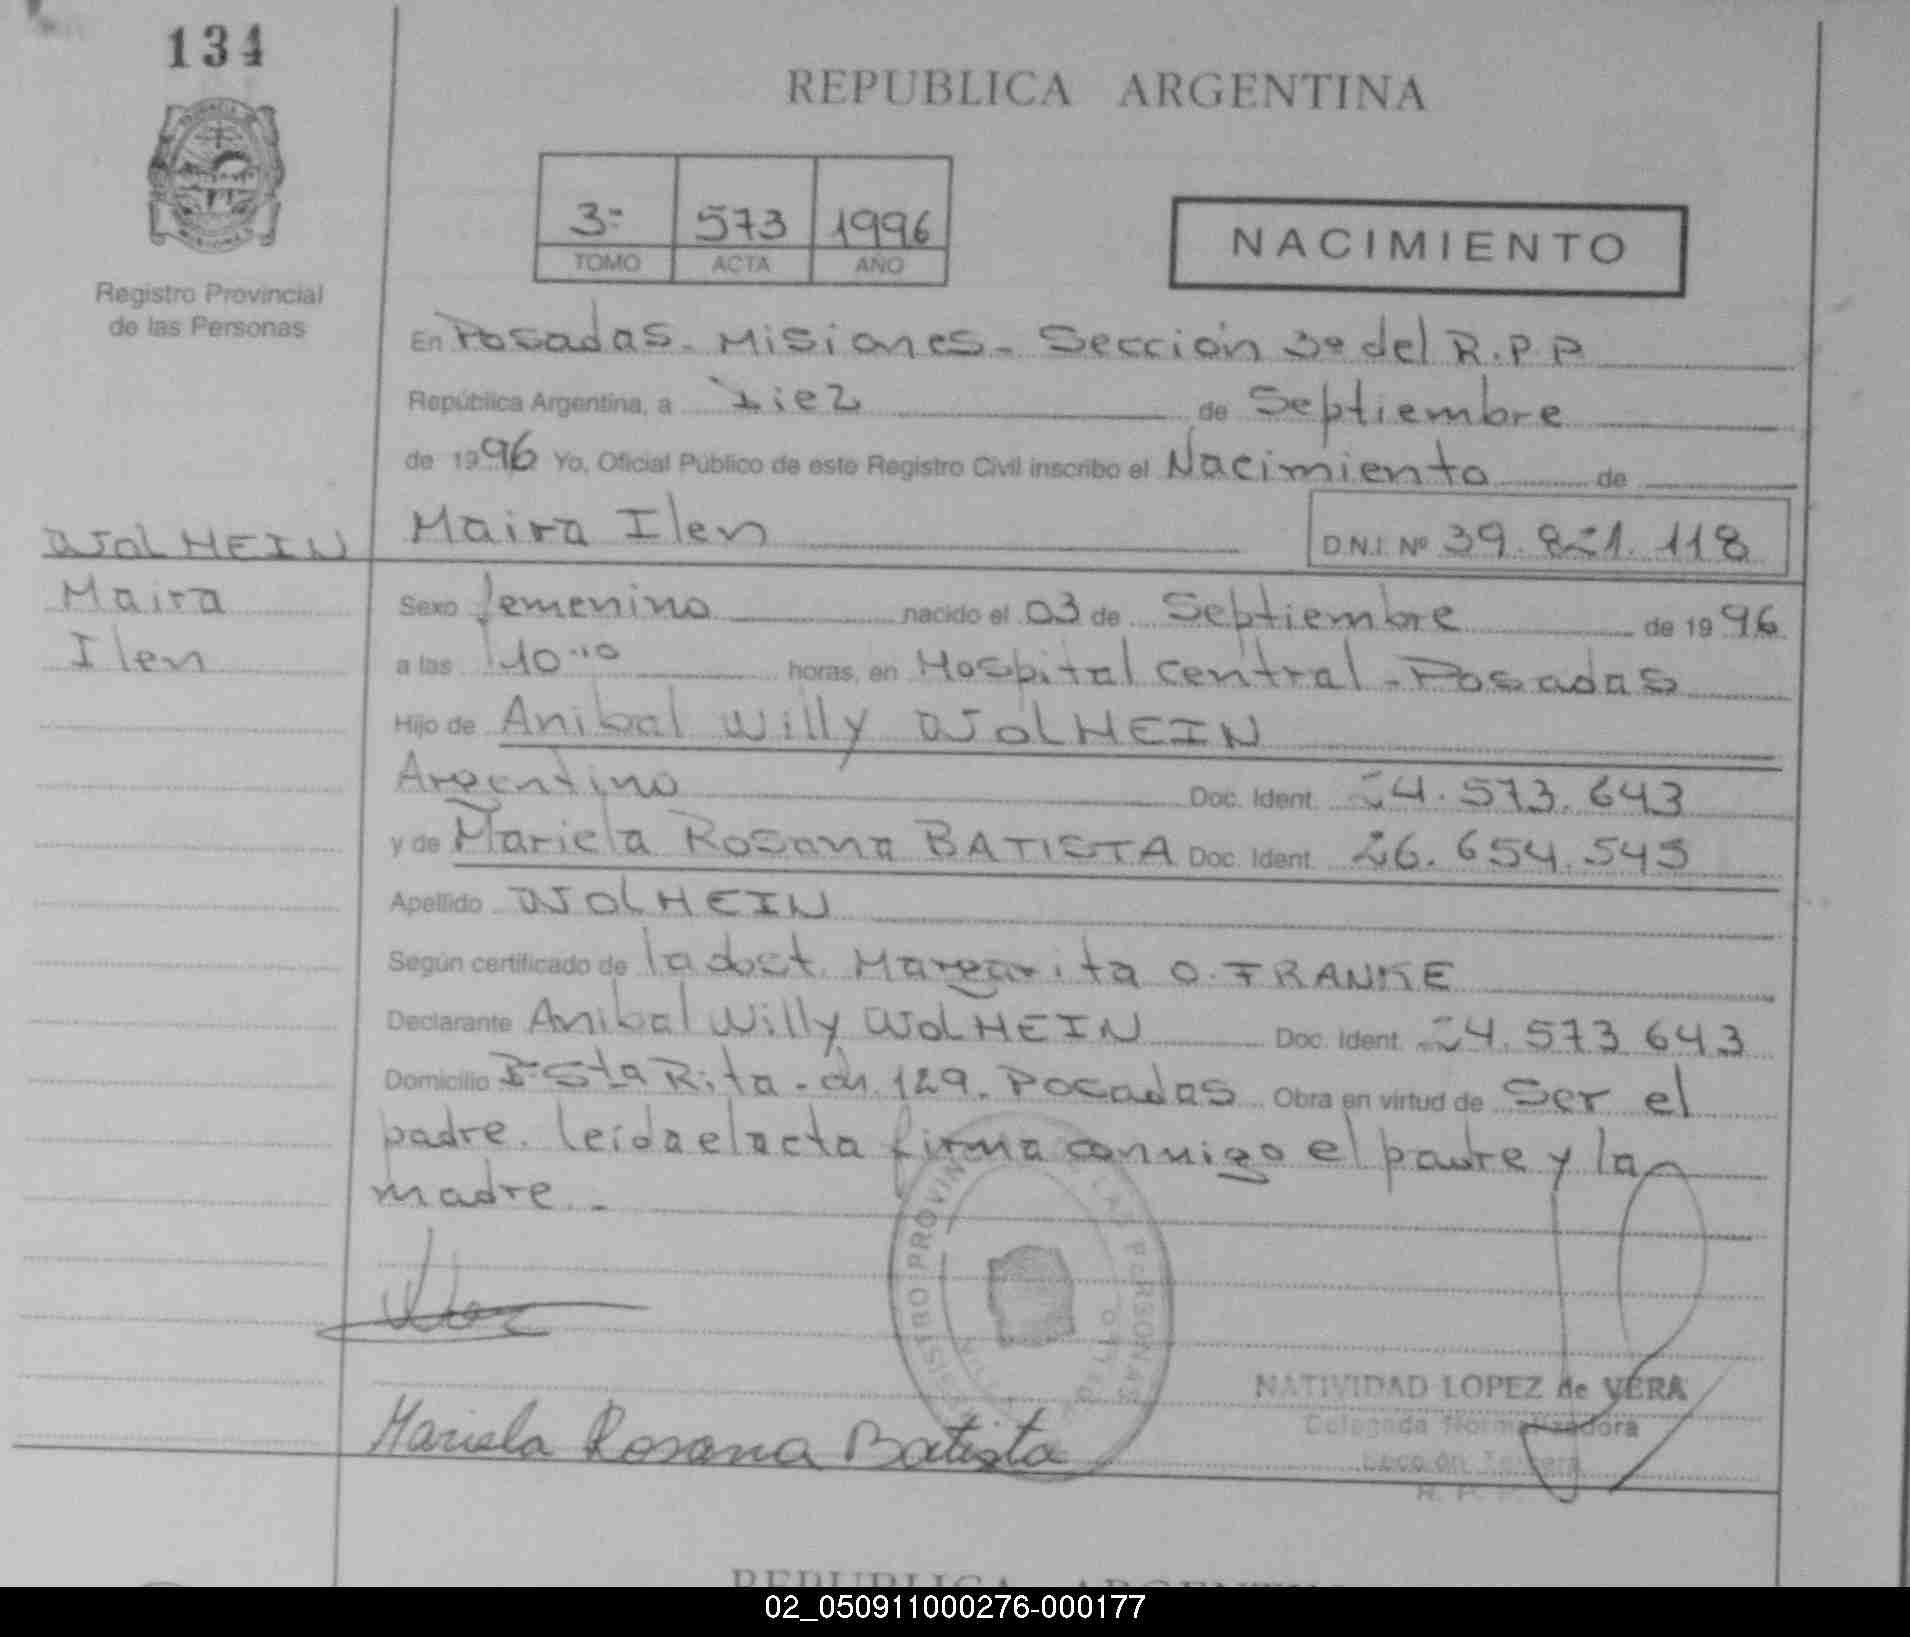 134
REPUBLICA ARGENTINA
3º 573 1996
TOMO ACTA AÑO
NACIMIENTO
Registro Provincial
de las Personas
En Posadas - Misiones - Sección 3º del R.P.P
República Argentina, a Diez de Septiembre
de 1996 Yo, Oficial Público de este Registro Civil inscribo el Nacimiento de
Maira Ilen D.N.I. Nº 39.821.118
WOLHEIN
Maira
Ilen
Sexo femenino nacido el 03 de Septiembre de 1996
a las 10.10 horas, en Hospital Central - Posadas
Hijo de Anibal Willy WOLHEIN
Argentino Doc. Ident. 24.573.643
y de Mariela Rosana BATISTA Doc. Ident. 26.654.545
Apellido WOLHEIN
Según certificado de la doct. Margarita O. FRANKE
Declarante Anibal Willy WOLHEIN Doc. Ident. 24.573.643
Domicilio Bº Sta Rita - ch. 129. Posadas Obra en virtud de Ser el
padre. leida el acta firma conmigo el padre y la
madre. -
REGISTRO PROVIN LAS PERSONAS
NATIVIDAD LOPEZ de VERA
Delegada Normalizadora
Sección Tercera
R. P.
Mariela Rosana Batista
REPUBLICA ARGENTINA
02_050911000276-000177